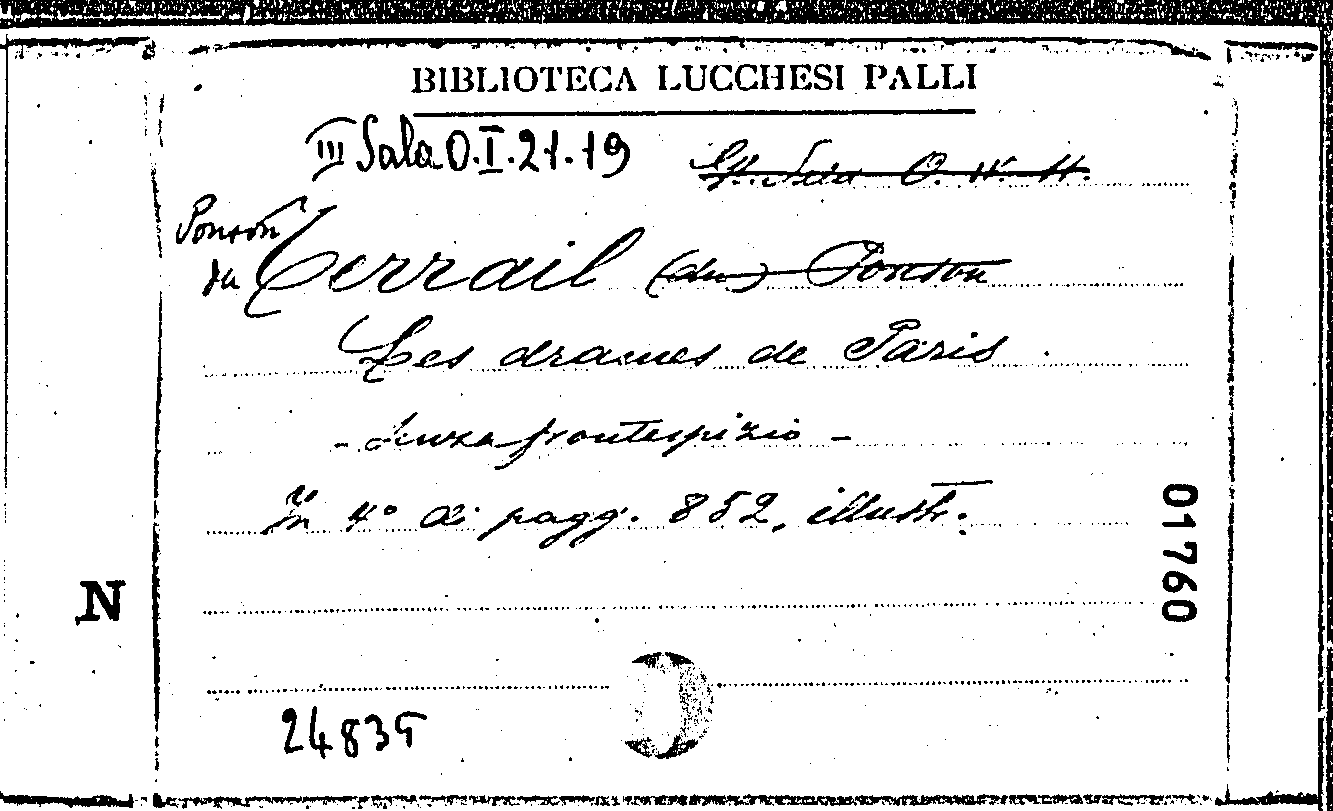 BIBLIOTECA LUCCHESI PALLI
III Sala O.I.21.19
Ponson
du Terrail (du) Ponson
Les drames de Paris
- Senza frontespizio -
In 4° di pagg. 852, illustr.
01760
N
24835